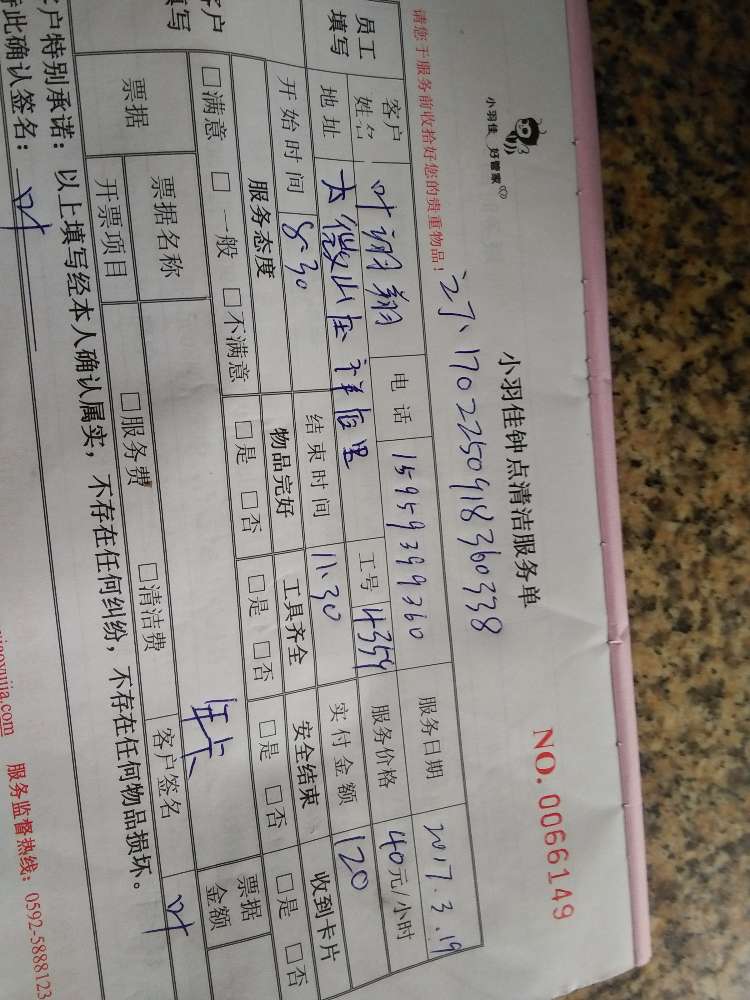 小羽佳 好管家
小羽佳钟点清洁服务单
NO.0066149
17022509918360338
请您于服务前收拾好您的贵重物品！
员工填写 客户姓名 叶翔翔 电话 15959399360 服务日期 2017.3.19
地址 工号 4359 服务价格 40元/小时
开始时间 8:30 结束时间 11:30 实付金额 120
客户填写 服务态度 物品完好 工具齐全 安全结束 收到卡片
□满意 □一般 □不满意 □是 □否 □是 □否 □是 □否 □是 □否
票据 票据名称 票据金额
开票项目 □服务费 □清洁费 客户签名 叶
客户特别承诺：以上填写经本人确认属实，不存在任何纠纷，不存在任何物品损坏。
此确认签名：叶
xiaoyujia.com 服务监督热线：0592-5888123